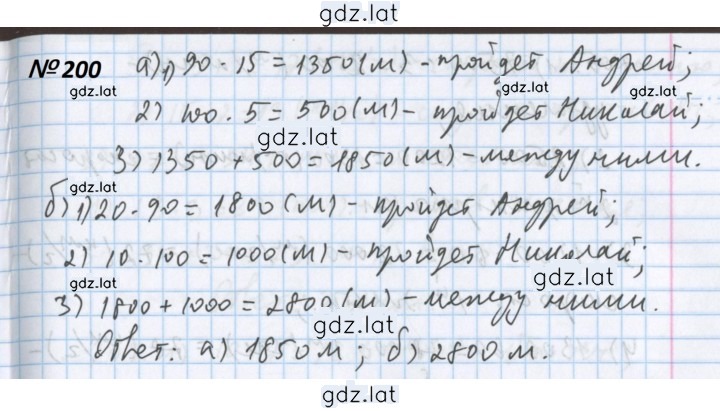 gdz.lat
№200 а) 1) 90 · 15 = 1350 (м) - пройдет Андрей;
gdz.lat gdz.lat gdz.lat
2) 100 · 5 = 500 (м) - пройдет Николай;
gdz.lat
3) 1350 + 500 = 1850 (м) - между ними.
gdz.lat
б) 1) 20 · 90 = 1800 (м) - пройдет Андрей;
2) 10 · 100 = 1000 (м) - пройдет Николай;
gdz.lat gdz.lat
3) 1800 + 1000 = 2800 (м) - между ними.
gdz.lat
Ответ: а) 1850 м; б) 2800 м.
gdz.lat